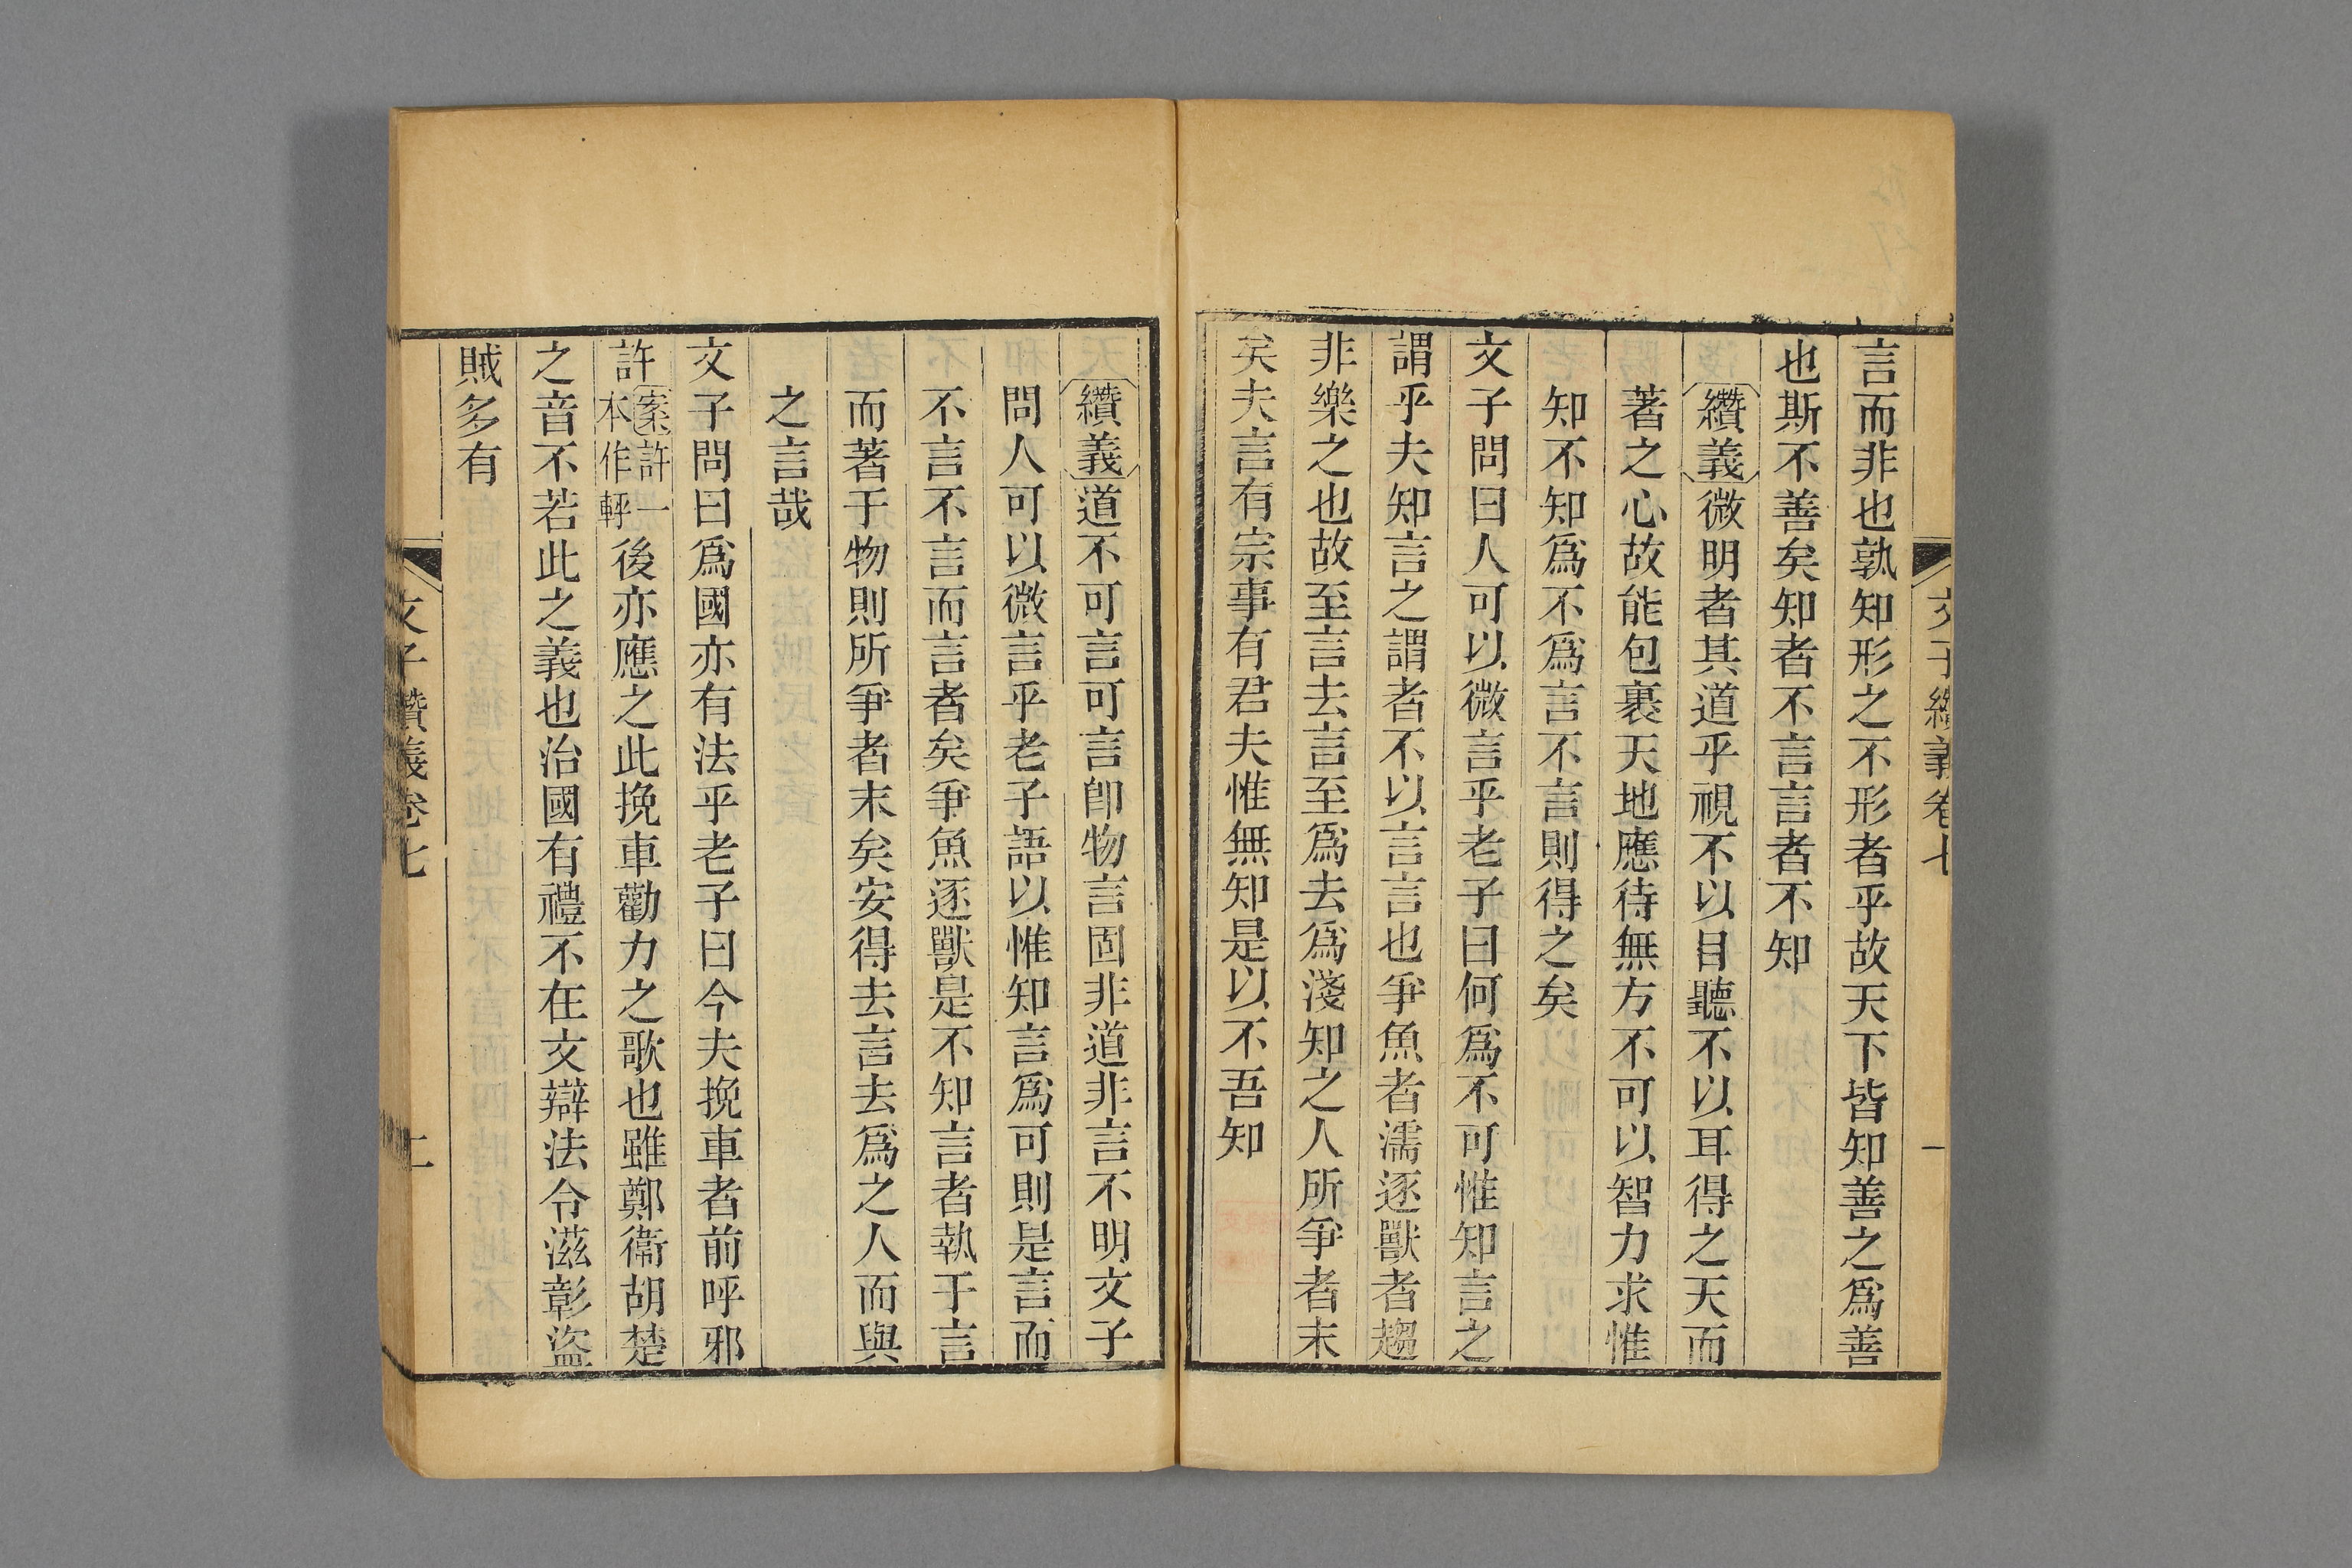 文子纘義卷七
一
言而非也孰知形之不形者乎故天下皆知善之爲善
也斯不善矣知者不言言者不知
纘義微明者其道乎視不以目聽不以耳得之天而
著之心故能包裹天地應待無方不可以智力求惟
知不知爲不爲言不言則得之矣
文子問曰人可以微言乎老子曰何爲不可惟知言之
謂乎夫知言之謂者不以言言也爭魚者濡逐獸者趨
非樂之也故至言去言至爲去爲淺知之人所爭者末
矣夫言有宗事有君夫惟無知是以不吾知
纘義道不可言可言卽物言固非道非言不明文子
問人可以微言乎老子語以惟知言爲可則是言而
不言不言而言者矣爭魚逐獸是不知言者執于言
而著于物則所爭者末矣安得去言去爲之人而與
之言哉
文子問曰爲國亦有法乎老子曰今夫挽車者前呼邪
許案許一本作軤後亦應之此挽車勸力之歌也雖鄭衞胡楚
之音不若此之義也治國有禮不在文辯法令滋彰盜
賊多有
文子纘義卷七